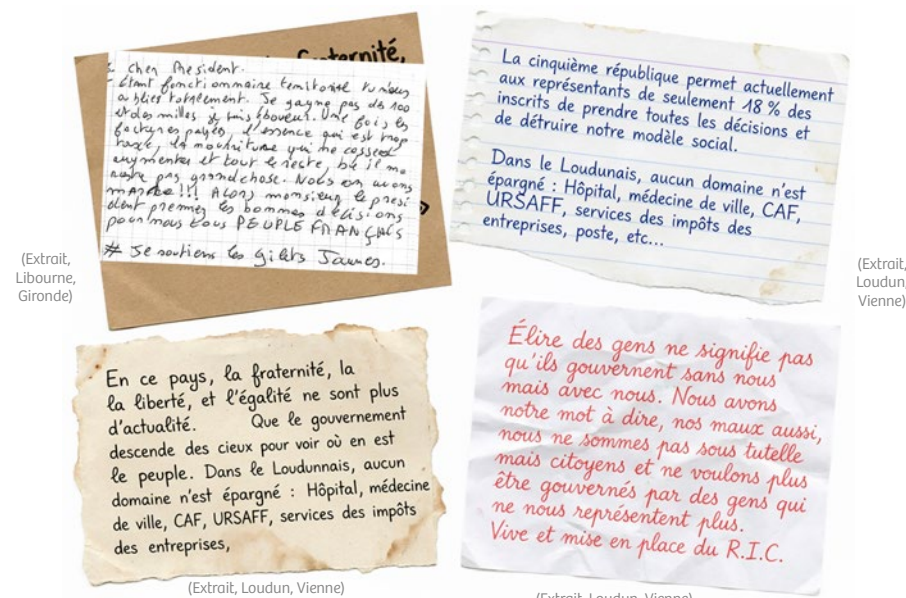 fraternité,
cher President.
étant fonctionnaire territorial tu nous
a blies totalement. Je gagne pas des 100
et des milles je suis éboueur. Une fois les
factures payés, l'essence qui est trop
taxé, la nourriture qui ne cessent
augmenter et tout le reste, bé il me
reste pas grand chose. Nous en avons
marre!!! Alors monsieur le presi
dent prennez les bonnes décisions
pour nous tous PEUPLE FRANÇAIS
# Je soutiens les Gilets Jaunes.
(Extrait,
Libourne,
Gironde)
La cinquième république permet actuellement
aux représentants de seulement 18 % des
inscrits de prendre toutes les décisions et
de détruire notre modèle social.
Dans le Loudunais, aucun domaine n'est
épargné : Hôpital, médecine de ville, CAF,
URSAFF, services des impôts des
entreprises, poste, etc...
(Extrait,
Loudun,
Vienne)
En ce pays, la fraternité, la
la liberté, et l'égalité ne sont plus
d'actualité. Que le gouvernement
descende des cieux pour voir où en est
le peuple. Dans le Loudunnais, aucun
domaine n'est épargné : Hôpital, médecine
de ville, CAF, URSAFF, services des impôts
des entreprises,
(Extrait, Loudun, Vienne)
Élire des gens ne signifie pas
qu'ils gouvernent sans nous
mais avec nous. Nous avons
notre mot à dire, nos maux aussi,
nous ne sommes pas sous tutelle
mais citoyens et ne voulons plus
être gouvernés par des gens qui
ne nous représentent plus.
Vive et mise en place du R.I.C.
(Extrait, Loudun, Vienne)